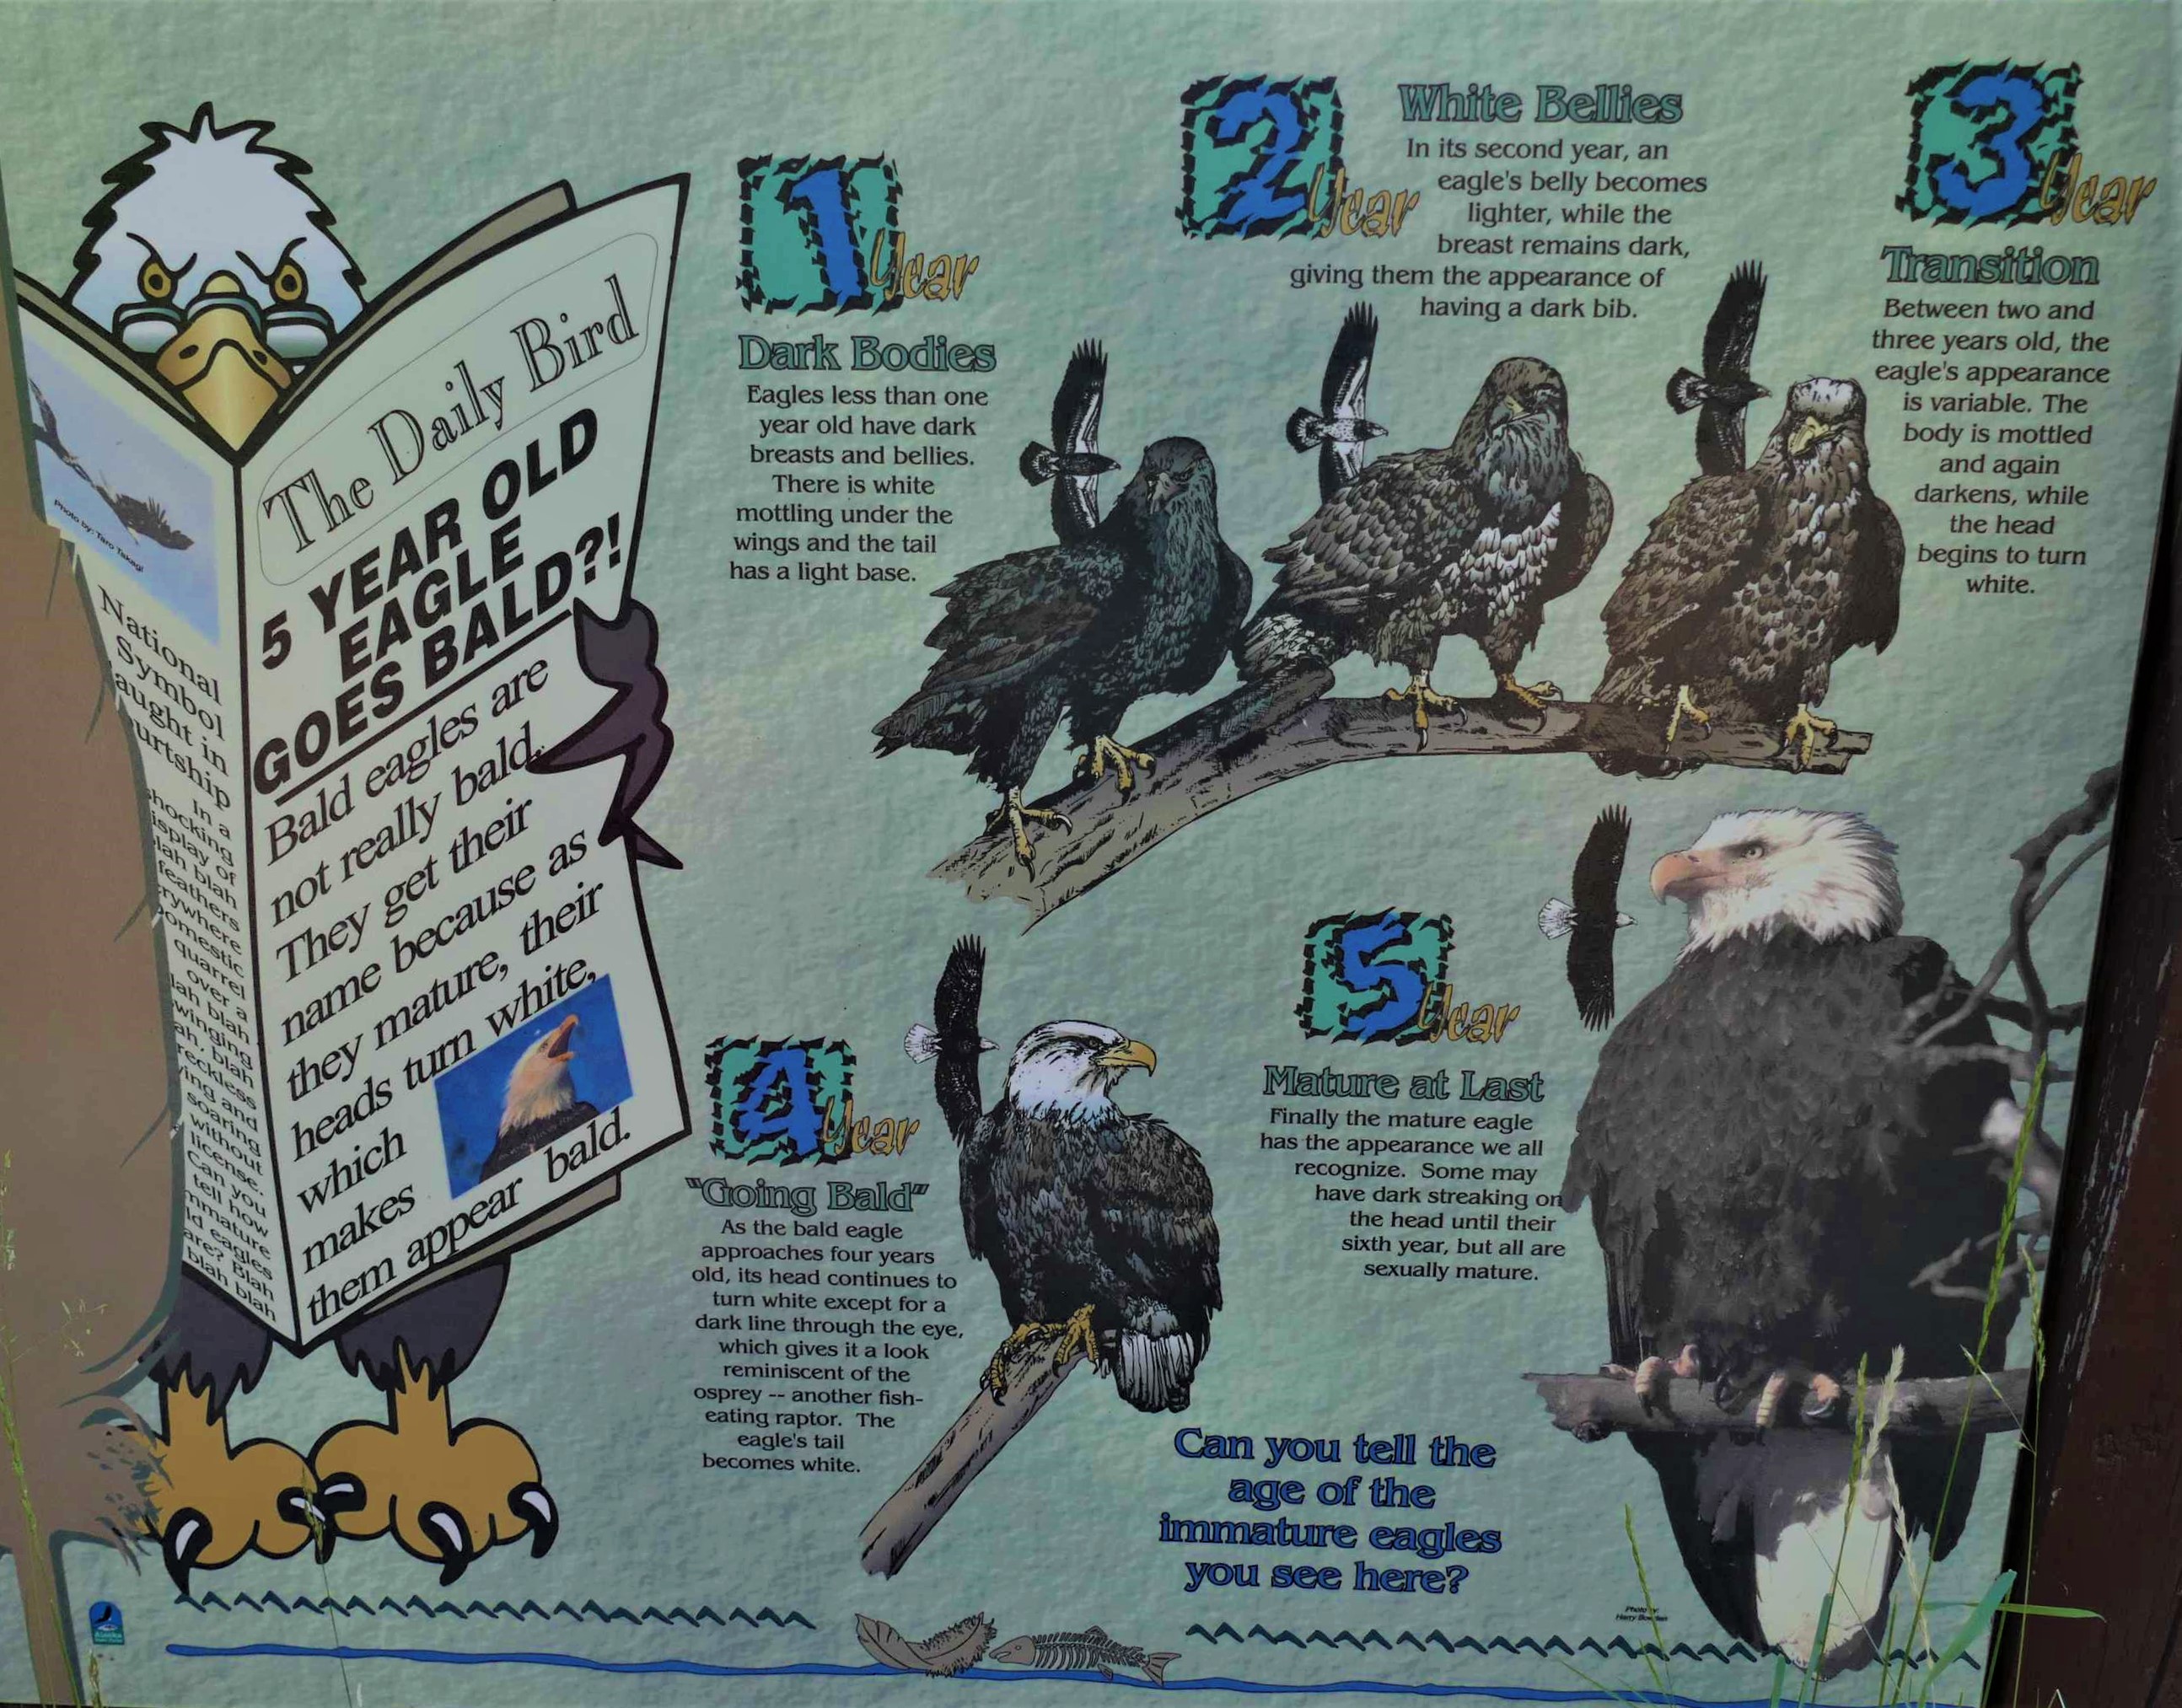 The Daily Bird
5 YEAR OLD
EAGLE
GOES BALD?!
Bald eagles are
not really bald.
They get their
name because as
they mature, their
heads turn white,
which
makes
them appear bald.
Photo by: Taro Takagi
National
Symbol
aught in
urtship
In a
hocking
isplay of
lah blah
feathers
rywhere
omestic
quarrel
over a
lah blah
winging
ah, blah
reckless
ing and
soaring
without
license.
Can you
tell how
mmature
ld eagles
are? Blah
blah blah
1 Year
Dark Bodies
Eagles less than one
year old have dark
breasts and bellies.
There is white
mottling under the
wings and the tail
has a light base.
2 Year
White Bellies
In its second year, an
eagle's belly becomes
lighter, while the
breast remains dark,
giving them the appearance of
having a dark bib.
3 Year
Transition
Between two and
three years old, the
eagle's appearance
is variable. The
body is mottled
and again
darkens, while
the head
begins to turn
white.
4 Year
"Going Bald"
As the bald eagle
approaches four years
old, its head continues to
turn white except for a
dark line through the eye,
which gives it a look
reminiscent of the
osprey -- another fish-
eating raptor. The
eagle's tail
becomes white.
5 Year
Mature at Last
Finally the mature eagle
has the appearance we all
recognize. Some may
have dark streaking on
the head until their
sixth year, but all are
sexually mature.
Can you tell the
age of the
immature eagles
you see here?
Photo
Harry
Alaska